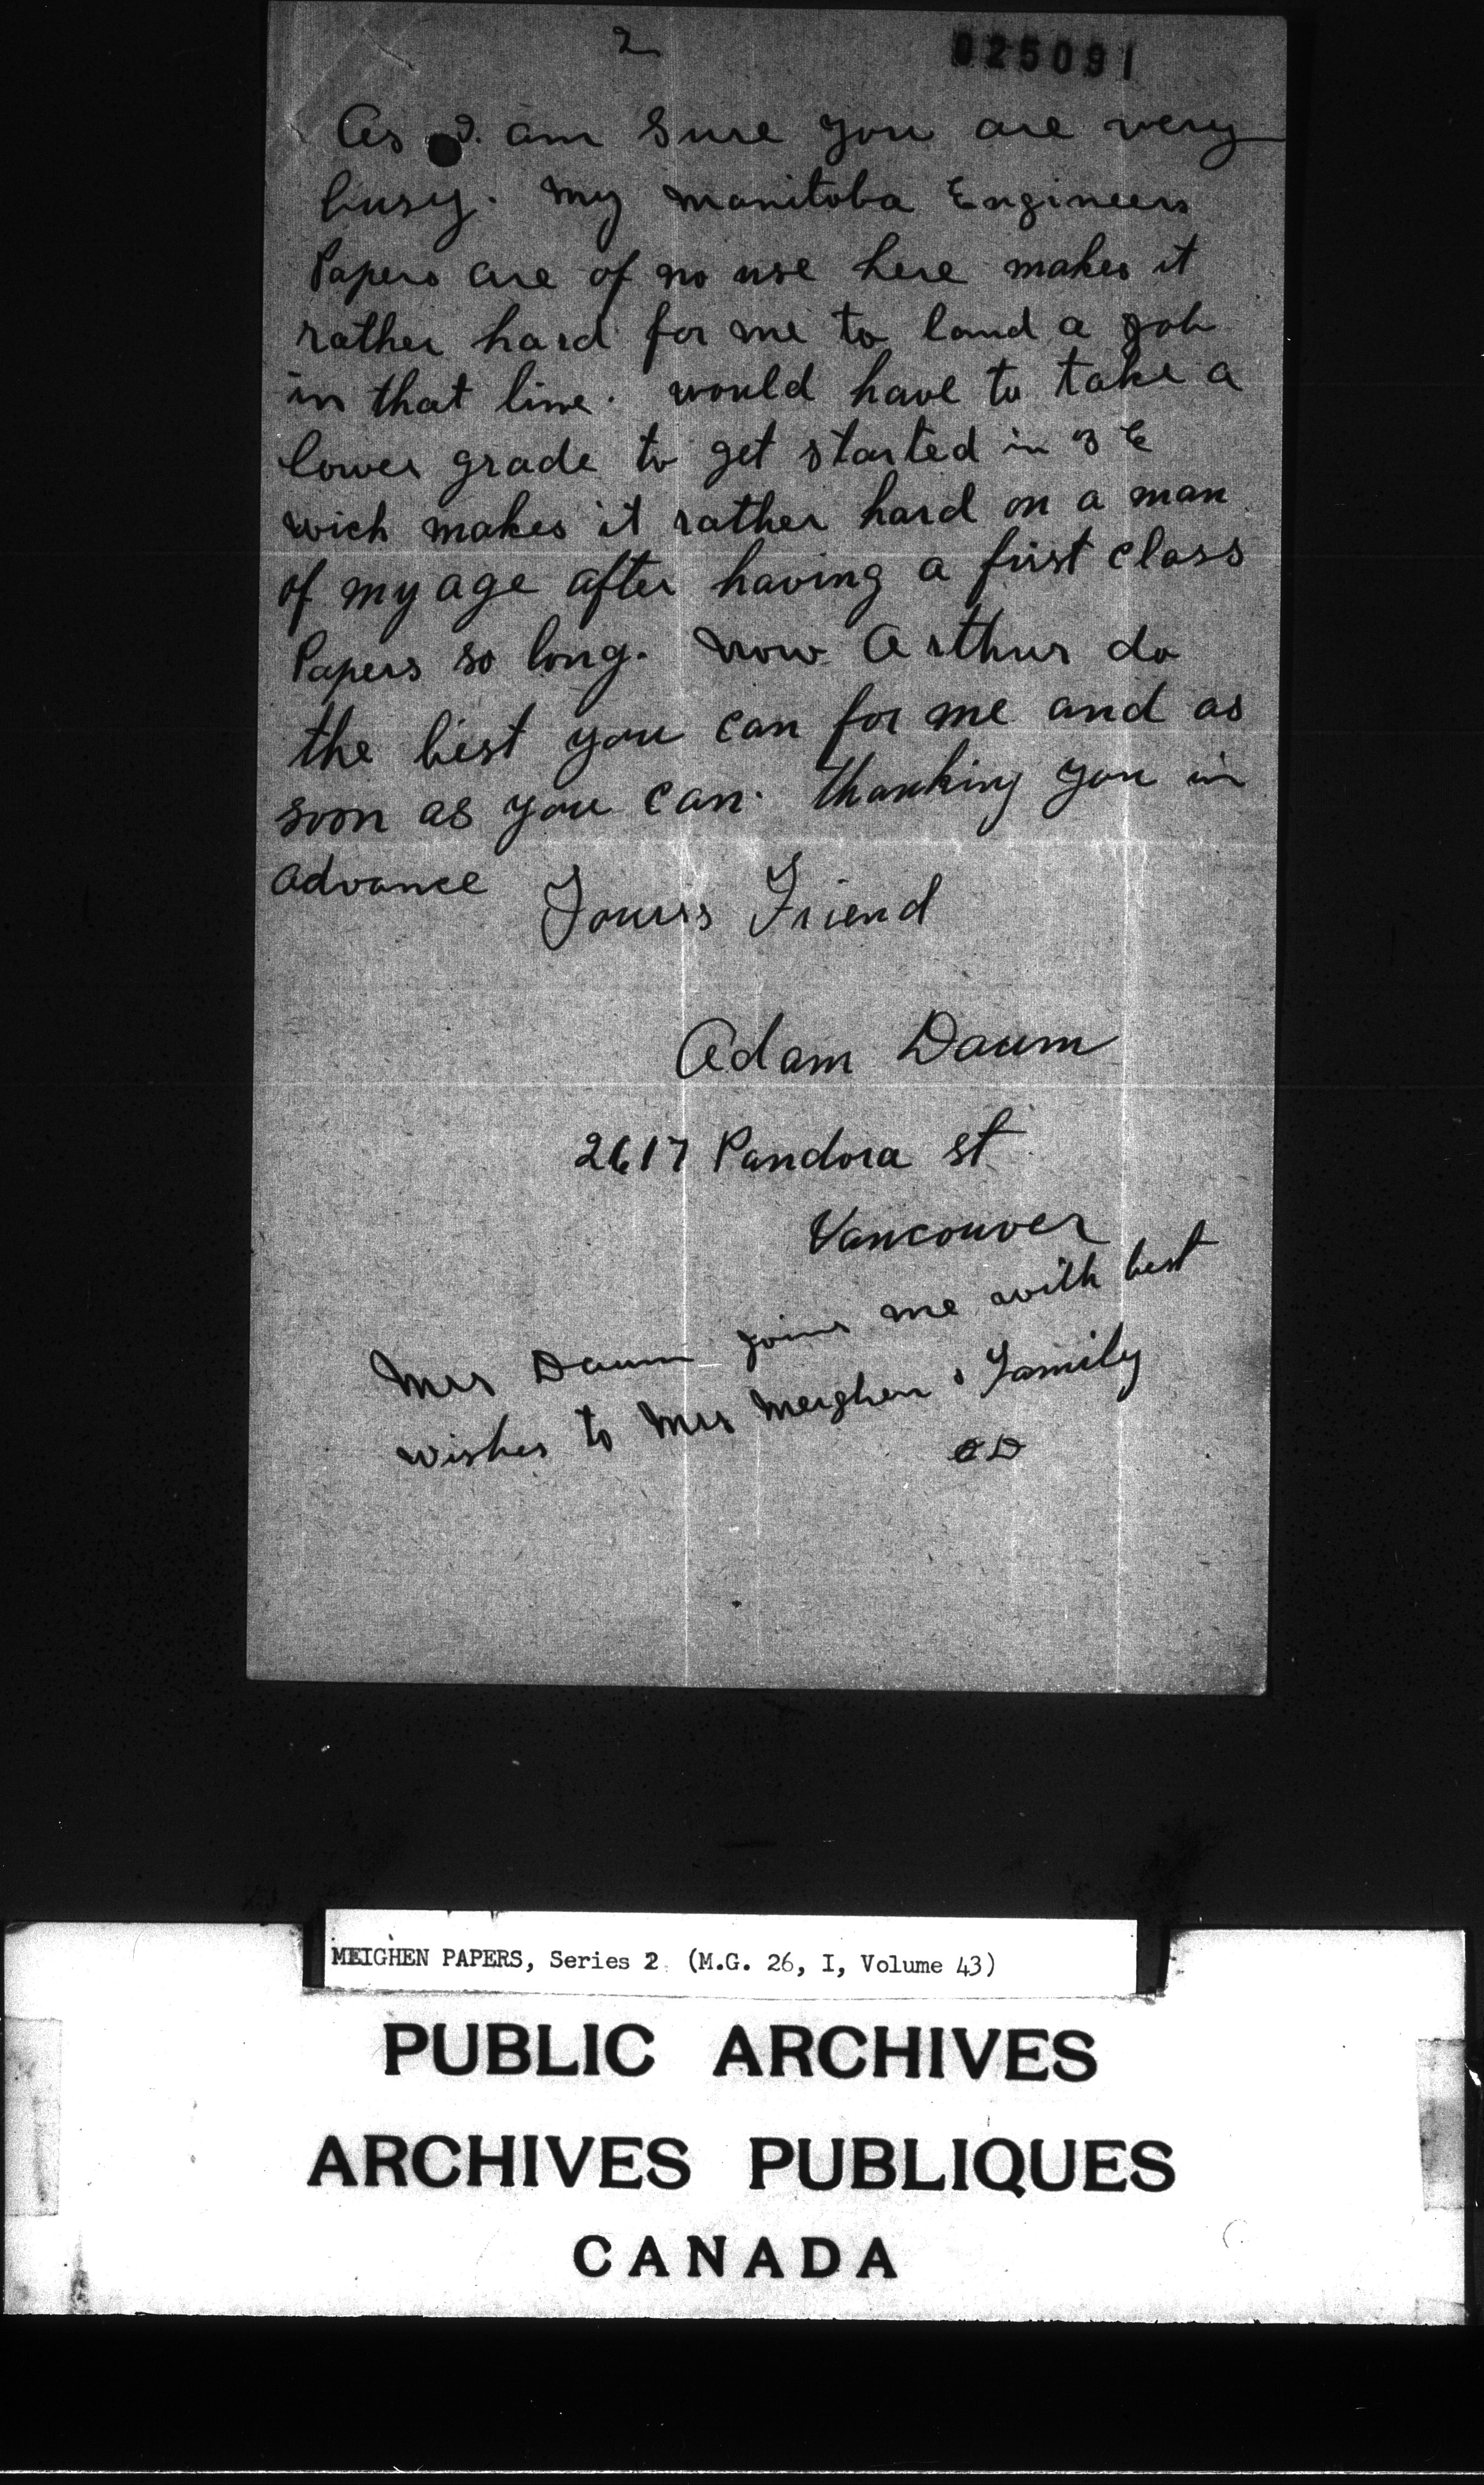 2
025091
As I am Sure you are very
busy. My Manitoba Engineers
Papers are of no use here makes it
rather hard for me to land a job
in that line. would have to take a
lower grade to get started in B C
wich makes it rather hard on a man
of my age after having a first class
Papers so long. Now Arthur do
the best you can for me and as
soon as you can. Thanking you in
advance
Yours Friend
Adam Daum
2617 Pandora st
Vancouver
Mrs Daum joins me with best
wishes to Mrs Meighen & Family
AD
MEIGHEN PAPERS, Series 2 (M.G. 26, I, Volume 43)
PUBLIC ARCHIVES
ARCHIVES PUBLIQUES
CANADA